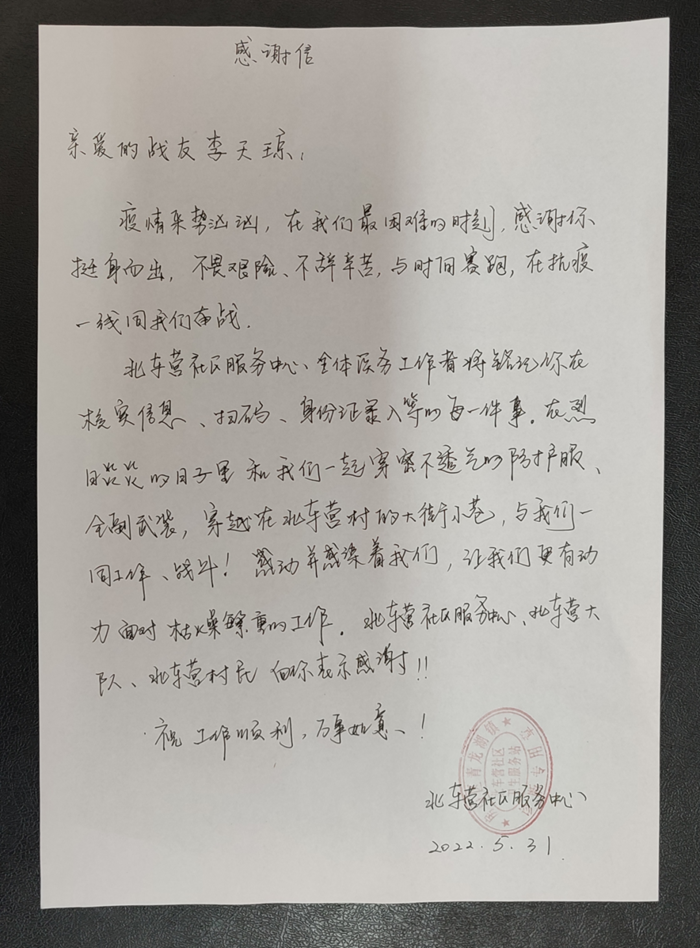 感谢信
亲爱的战友李天琼：
疫情来势汹汹，在我们最困难的时刻，感谢你
挺身而出，不畏艰险、不辞辛苦，与时间赛跑，在抗疫
一线同我们奋战.
北车营社区服务中心、全体医务工作者将铭记你在
核实信息、扫码、身份证录入等的每一件事。在烈
日炎炎的日子里和我们一起穿密不透气的防护服、
全副武装，穿越在北车营村的大街小巷，与我们一
同工作、战斗！感动并感染着我们，让我们更有动
力面对枯燥繁重的工作。北车营社区服务中心、北车营大
队、北车营村民向你表示感谢！！
祝工作顺利，万事如意、！
北车营社区服务中心
2022.5.31